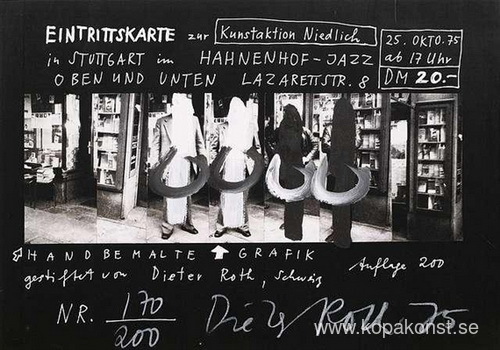 EINTRITTSKARTE zur Kunstaktion Niedlich
in STUTTGART im HAHNENHOF-JAZZ
OBEN UND UNTEN LAZARETTSTR. 8
25. OKTO. 75
ab 17 Uhr
DM 20.-
HANDBEMALTE GRAFIK
gestiftet von Dieter Roth, Schweiz
Auflage 200
NR. 170/200
Dieter Roth 75
www.kopakonst.se